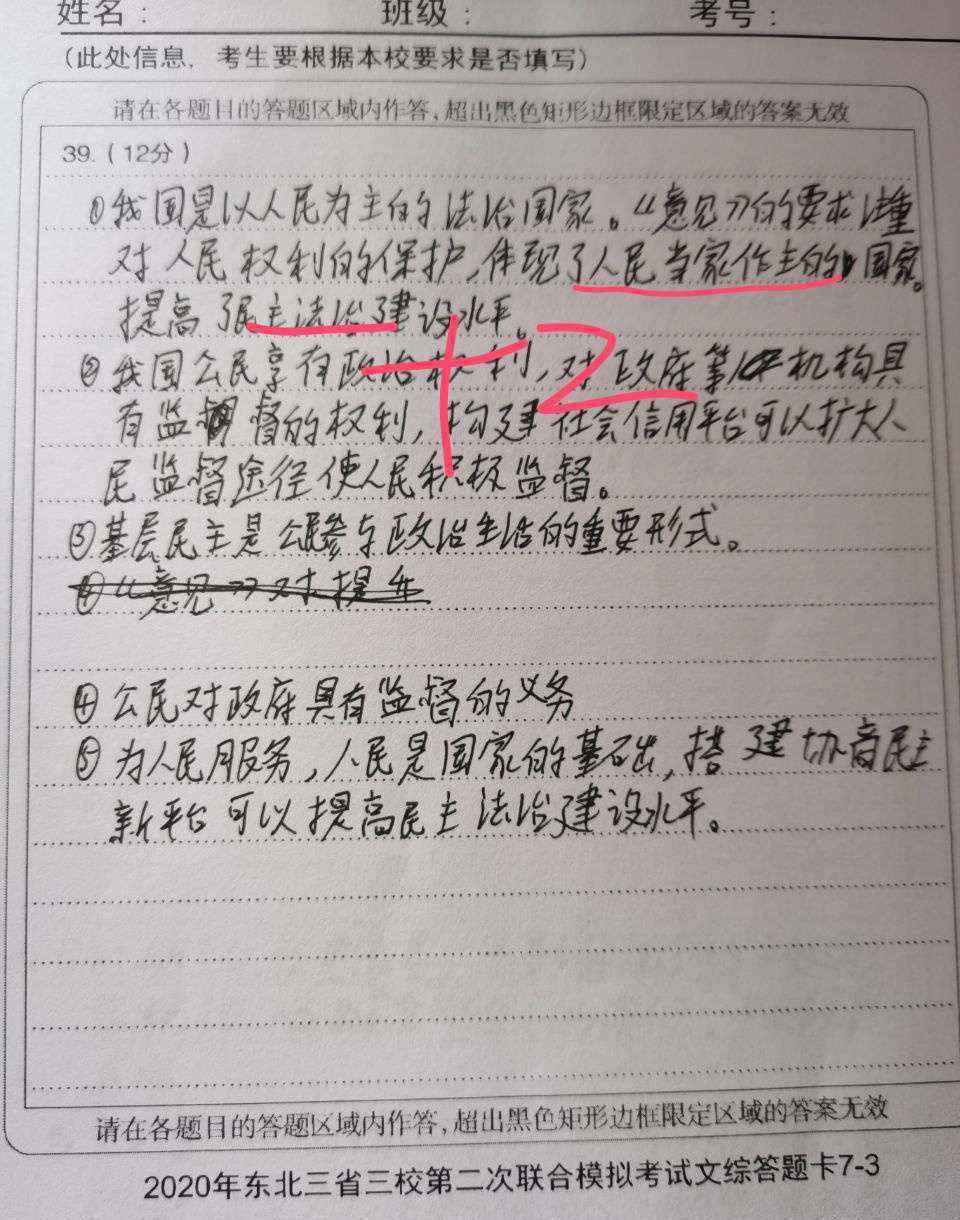 姓名： 班级： 考号：
（此处信息，考生要根据本校要求是否填写）
请在各题目的答题区域内作答，超出黑色矩形边框限定区域的答案无效
39.（12分）
①我国是以人民为主的法治国家。《意见》的要求注重
对人民权利的保护，体现了人民当家作主的国家。
提高了民主法治建设水平。
+2
②我国公民享有政治权利，对政府等机构具
有监督的权利，构建社会信用平台可以扩大人
民监督途径使人民积极监督。
③基层民主是公民参与政治生活的重要形式。
④《意见》对提
④公民对政府具有监督的义务
⑤为人民服务，人民是国家的基础，搭建协商民主
新平台可以提高民主法治建设水平。
请在各题目的答题区域内作答，超出黑色矩形边框限定区域的答案无效
2020年东北三省三校第二次联合模拟考试文综答题卡7-3